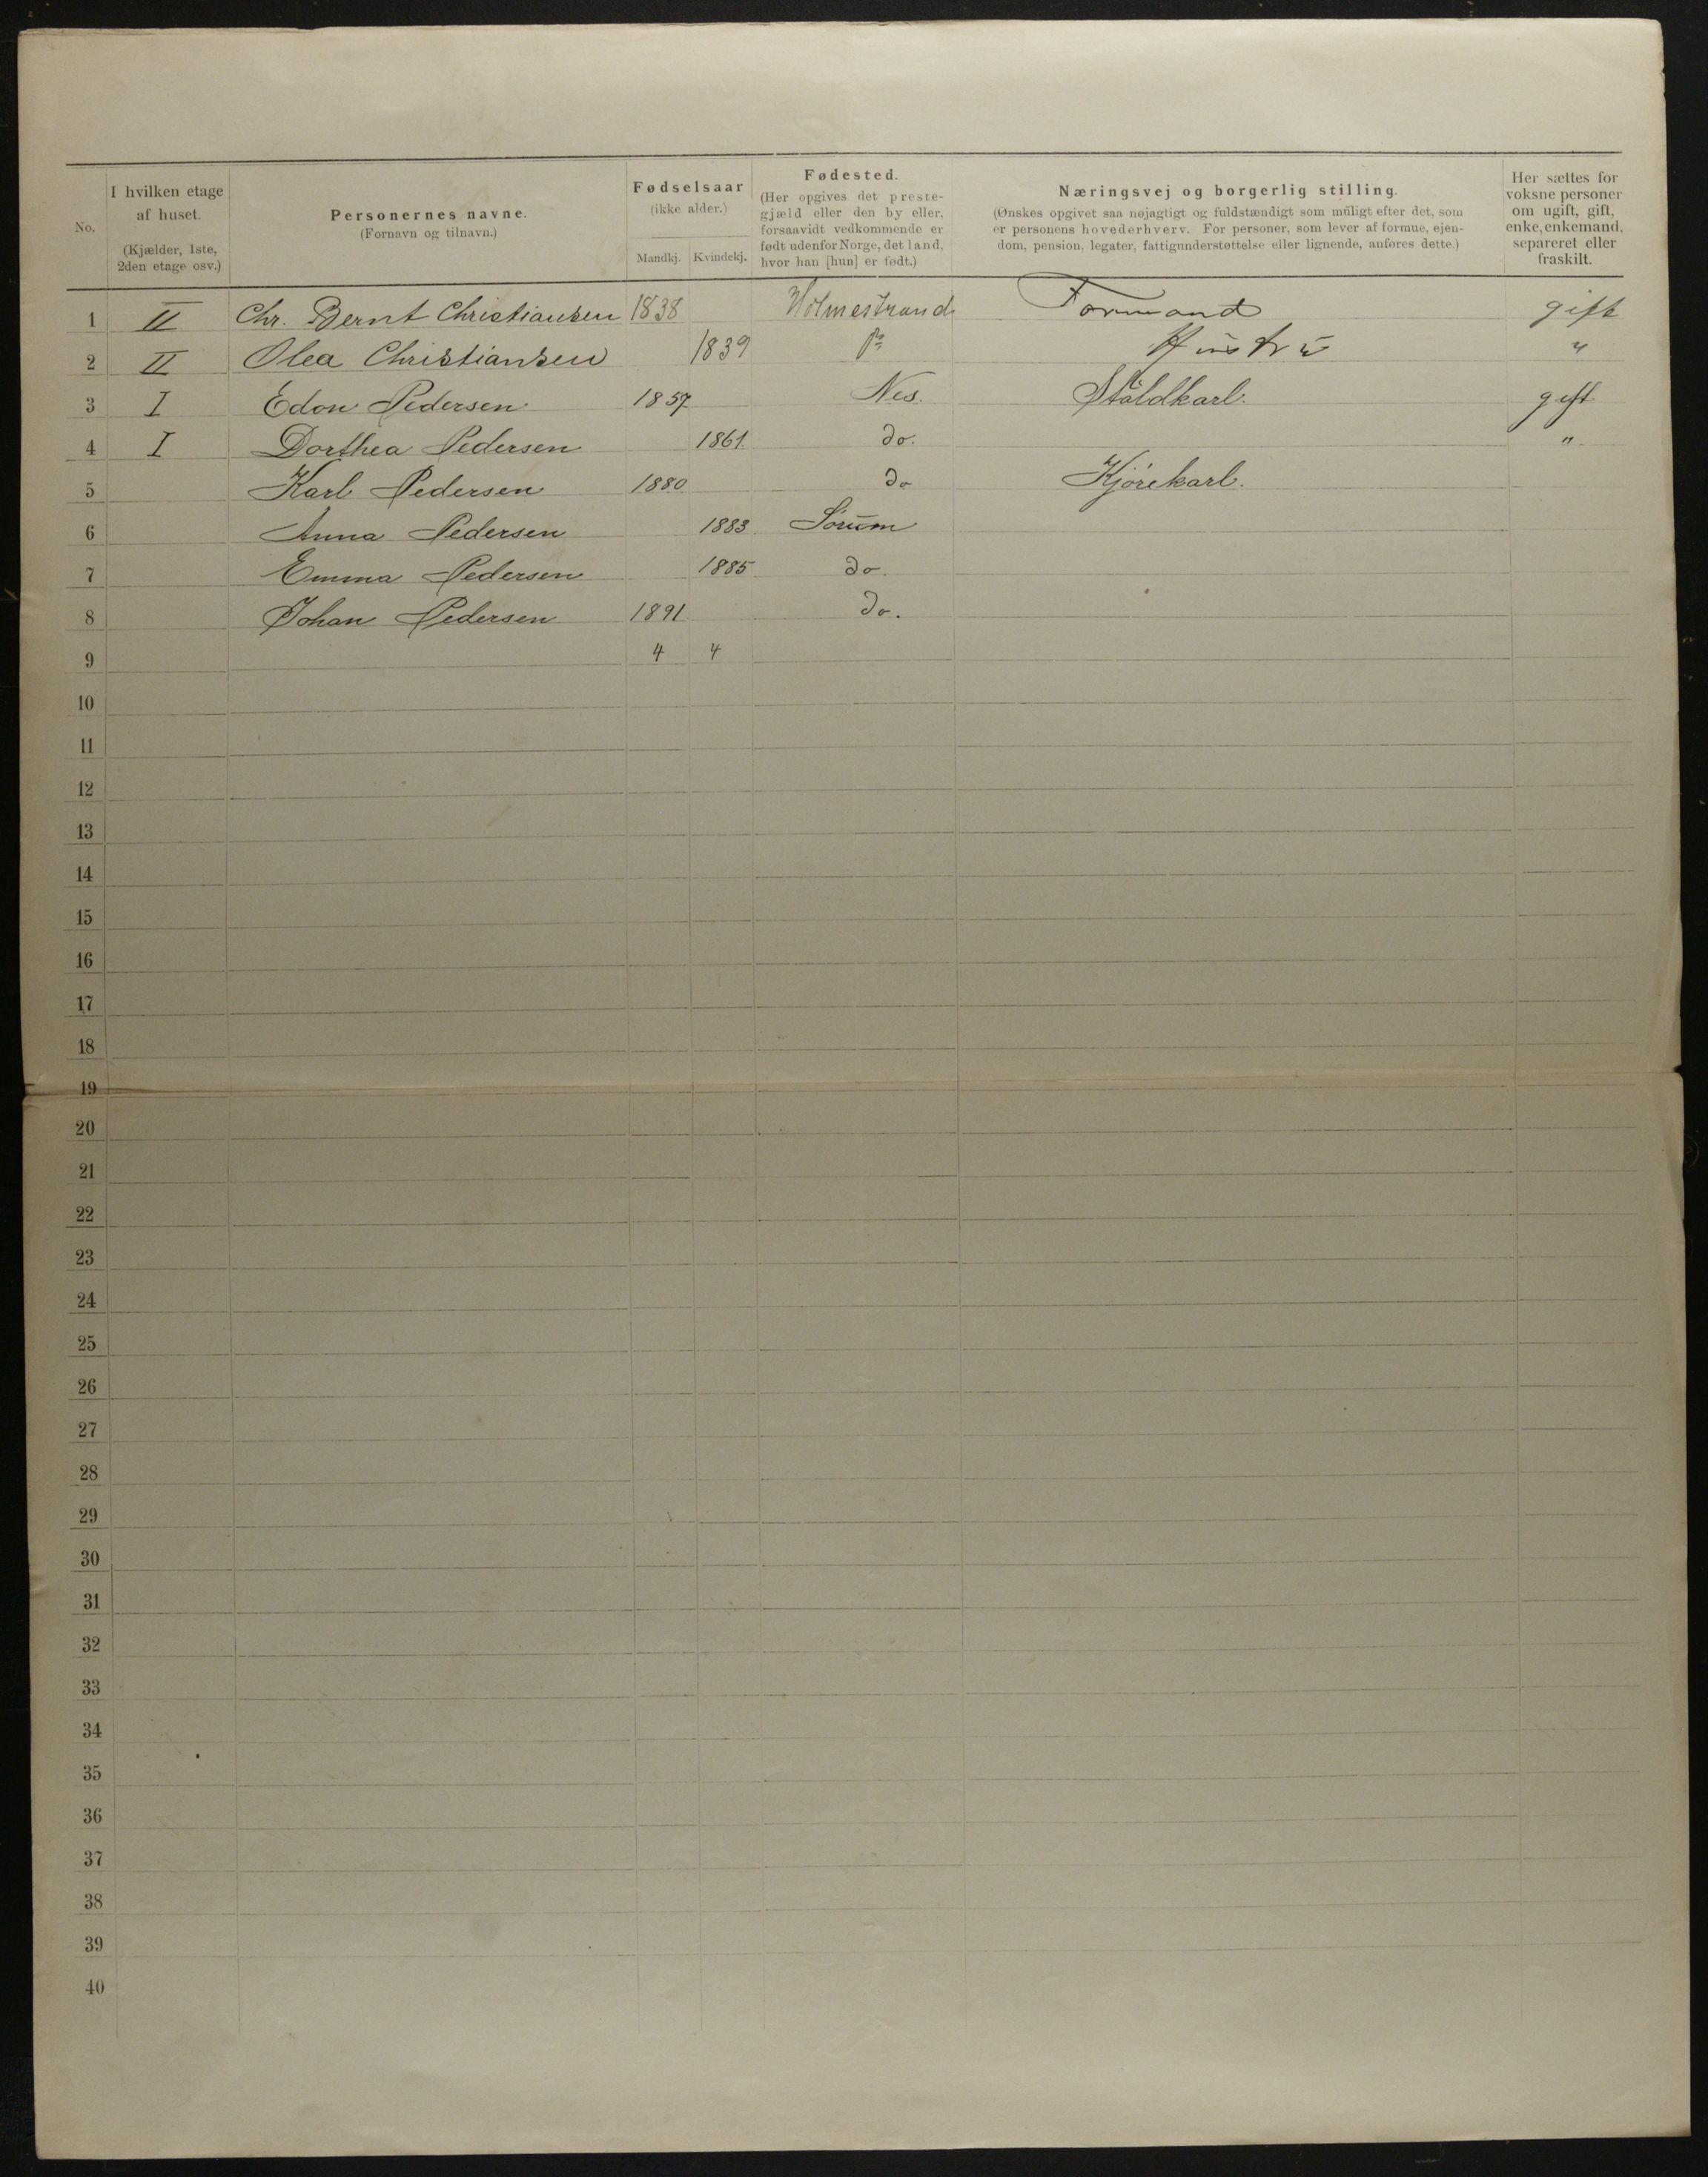 No.
I hvilken etage
af huset.
(Kjælder, 1ste,
2den etage osv.)
Personernes navne.
(Fornavn og tilnavn.)
Fødselsaar
(ikke alder.)
Mandkj. Kvindekj.
Fødested.
(Her opgives det preste-
gjæld eller den by eller,
forsaavidt vedkommende er
født udenfor Norge, det land,
hvor han [hun] er født.)
Næringsvej og borgerlig stilling.
(Ønskes opgivet saa nøjagtigt og fuldstændigt som muligt efter det, som
er personens hovederhverv. For personer, som lever af formue, ejen-
dom, pension, legater, fattigunderstøttelse eller lignende, anføres dette.)
Her sættes for
voksne personer
om ugift, gift,
enke, enkemand,
separeret eller
fraskilt.
1 II Chr. Bernt Christiansen 1838 Holmestrand Formand gift
2 II Olea Christiansen 1839 Do Hustru "
3 I Edon Pedersen 1857 Nes. Staldkarl. gift
4 I Dorthea Pedersen 1861 do. "
5 Karl Pedersen 1880 do Kjørekarl.
6 Anna Pedersen 1883 Sørum
7 Emma Pedersen 1885 do.
8 Johan Pedersen 1891 do.
9 4 4
10
11
12
13
14
15
16
17
18
19
20
21
22
23
24
25
26
27
28
29
30
31
32
33
34
35
36
37
38
39
40